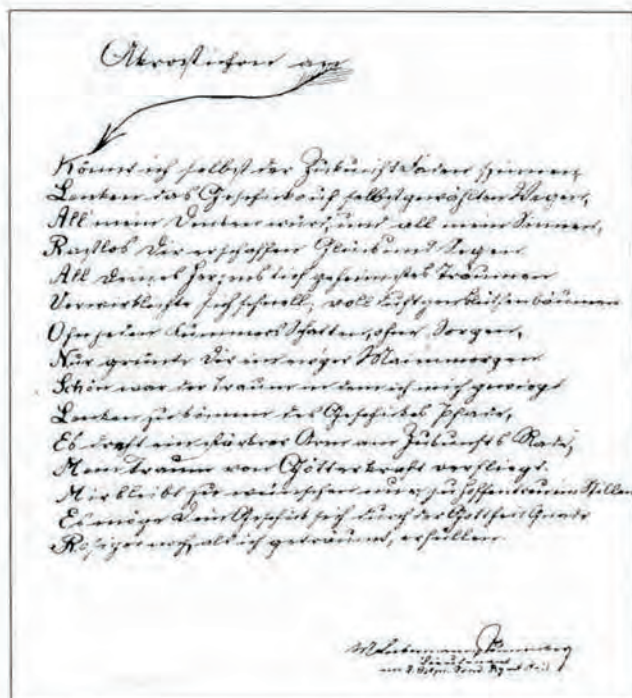 Akrostichon an
Könnt ich selbst der Zukunft Faden spinnen,
Lenken das Geschick auf selbstgewählten Wegen,
All' mein Denken würd', und all mein Sinnen,
Rastlos Dir erschaffen Glück und Segen
All Deines Herzens tief geheimstes Träumen
Verwirklichte sich schnell, voll
Ohn jeden Kummers Schatten, ohne Sorgen,
Nur grünte Dir ein ew'ger Maienmorgen
Schön war der Traum in dem ich mich gewiegt
Lenken zu können des Geschickes Pfade,
Es dreht ein stärkrer Arm am Zukunfts Rade,
Mein Traum von Götterkraft verfliegt.
Mir bleibt zu wünschen nur, zu hoffen im Stillen
Es möge Dein Geschick sich durch der Gottheit Gnade
Rosiger noch, als ich geträumt, erfüllen
Lieutenant